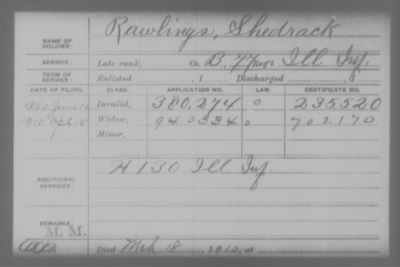 NAME OF SOLDIER: Rawlings, Shedrack
SERVICE: Late rank, Co. B, 77 Reg't Ill Inf.
TERM OF SERVICE: Enlisted , 1 Discharged , 1
DATE OF FILING. CLASS. APPLICATION NO. LAW. CERTIFICATE NO.
1880 June 12 Invalid, 380,274 0 235520
1910 Apl 15 Widow, 940334 0 702170
Minor,
ADDITIONAL SERVICES: H 130 Ill Inf.
REMARKS: M. M.
Died Mch 18, 1910, at